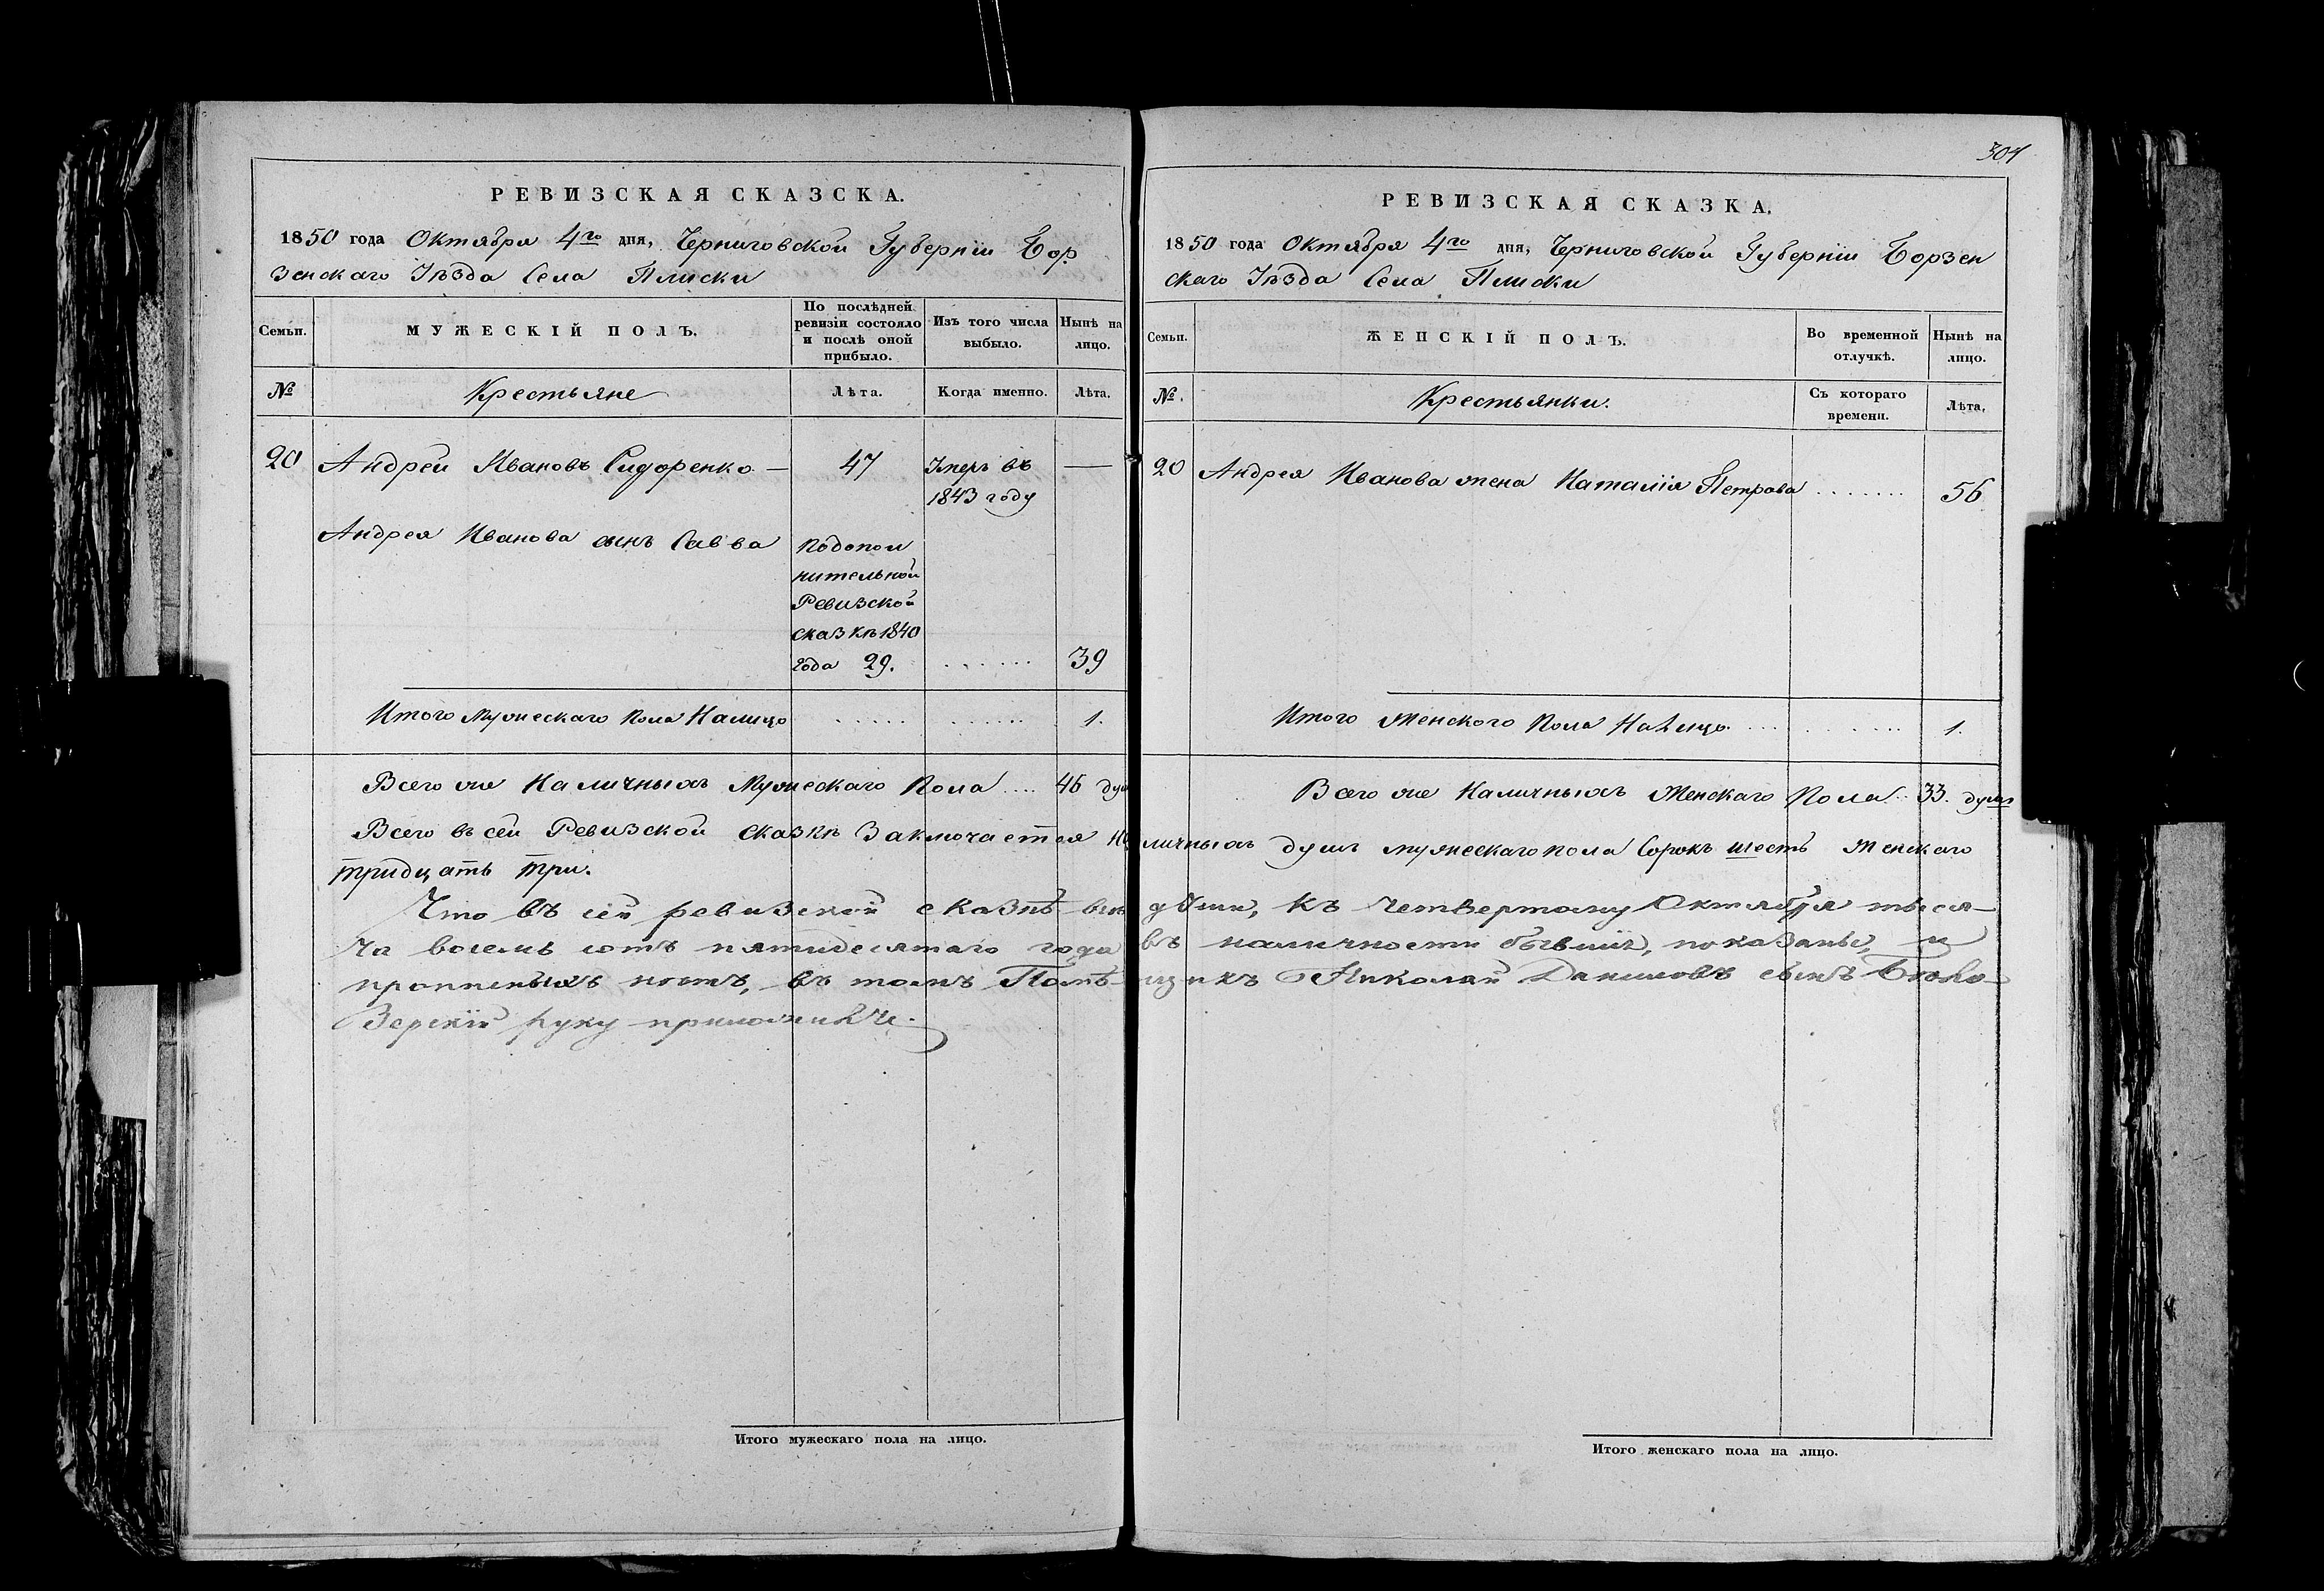 РЕВИЗСКАЯ СКАЗСКА.
1850 года Октября 4го дня, Черниговской Губерніи Бор
зенскаго Уѣзда Села Плиски
Семьи.
МУЖЕСКІЙ ПОЛЪ.
По послѣдней
ревизіи состояло
и послѣ оной
прибыло.
Изъ того числа
выбыло.
Нынѣ на
лицо.
№
Крестьяне
Лѣта.
Когда именно.
Лѣта.
20 Андрей Ивановъ Сидоренко — 47 Умеръ въ —
1843 году
Андрея Иванова сынъ Савва
подопол
нительной
Ревизской
сказкѣ 1840
года 29. ...... 39
Итого мужескаго пола налицо ..... ...... 1.
Всего же наличныхъ мужескаго пола .... 46 душ
Итого мужескаго пола на лицо.
304
РЕВИЗСКАЯ СКАЗКА.
1850 года Октября 4го дня, Черниговской Губерніи Борзен
скаго Уѣзда Села Плиски
Семьи.
ЖЕНСКІЙ ПОЛЪ.
Во временной
отлучкѣ.
Нынѣ на
лицо.
№.
Крестьянки.
Съ котораго
времени.
Лѣта.
20 Андрея Иванова жена Наталія Петрова ....... 56
Итого женского пола налицо .... ...... 1.
Всего же наличныхъ женскаго пола .. 33. душъ
Всего въ сей Ревизской сказкѣ заключается наличныхъ душъ мужескаго пола сорокъ шесть женскаго
тридцать три.
Что въ сей ревизской сказкѣ всѣ души, къ четвертому Октября тыся-
ча восемь сотъ пятидесятаго года въ наличности бывшіе, показаны, и
прописныхъ нѣтъ, въ томъ Помѣщикъ Николай Даниловъ сынъ Бѣло-
зерскій руку приложилъ.
Итого женскаго пола на лицо.